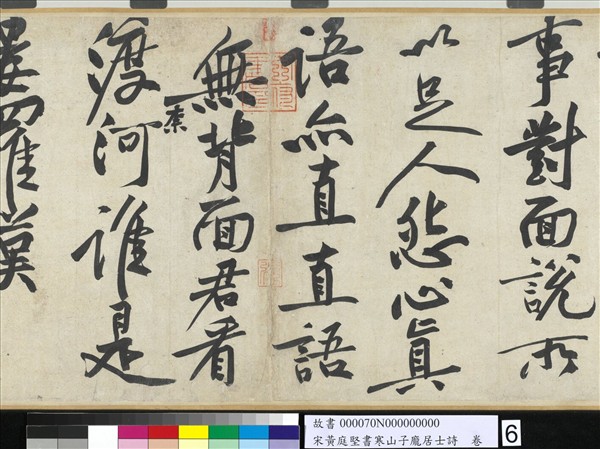 事對面說所
以足人怨心真
語亦直直語
無背面君看
渡河誰是
柰
婁羅漢
故書 000070N000000000
宋黃庭堅書寒山子龐居士詩 卷
6